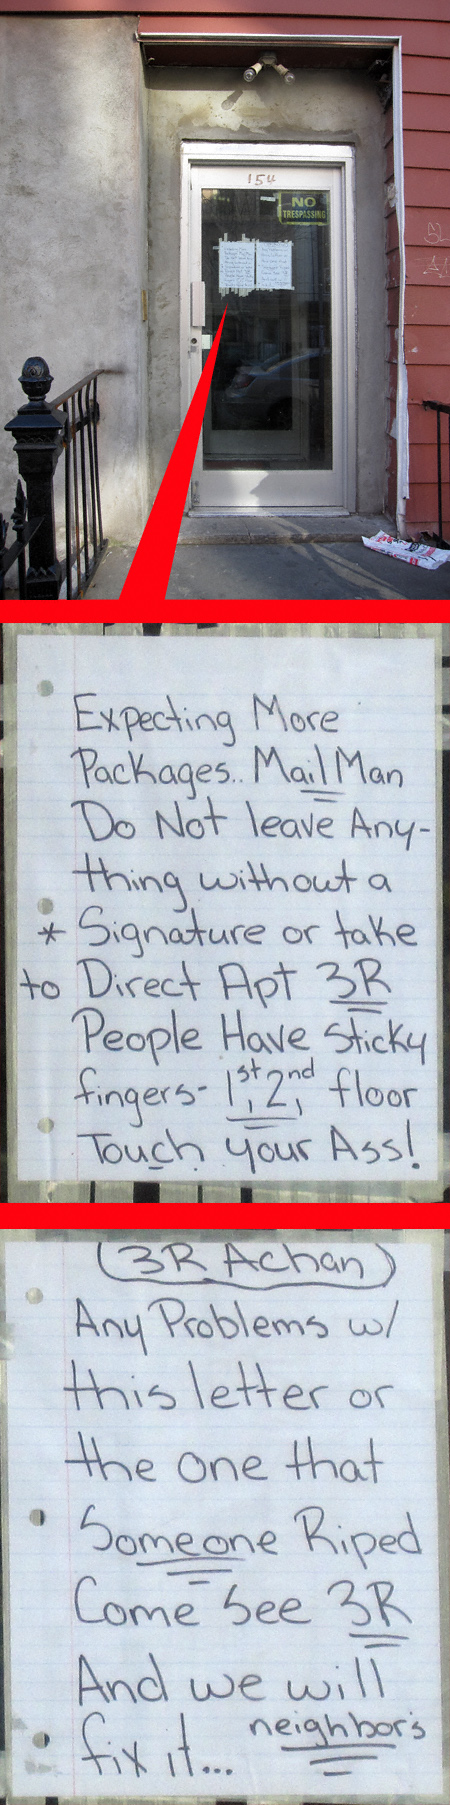 154
NO
TRESPASSING
Expecting More
Packages.. MailMan
Do Not leave Any-
thing without a
* Signature or take
to Direct Apt 3R
People Have Sticky
fingers- 1st, 2nd, floor
Touch your Ass!
(3R Achan)
Any Problems w/
this letter or
the one that
Someone Riped
Come See 3R
And we will
fix it... neighbors